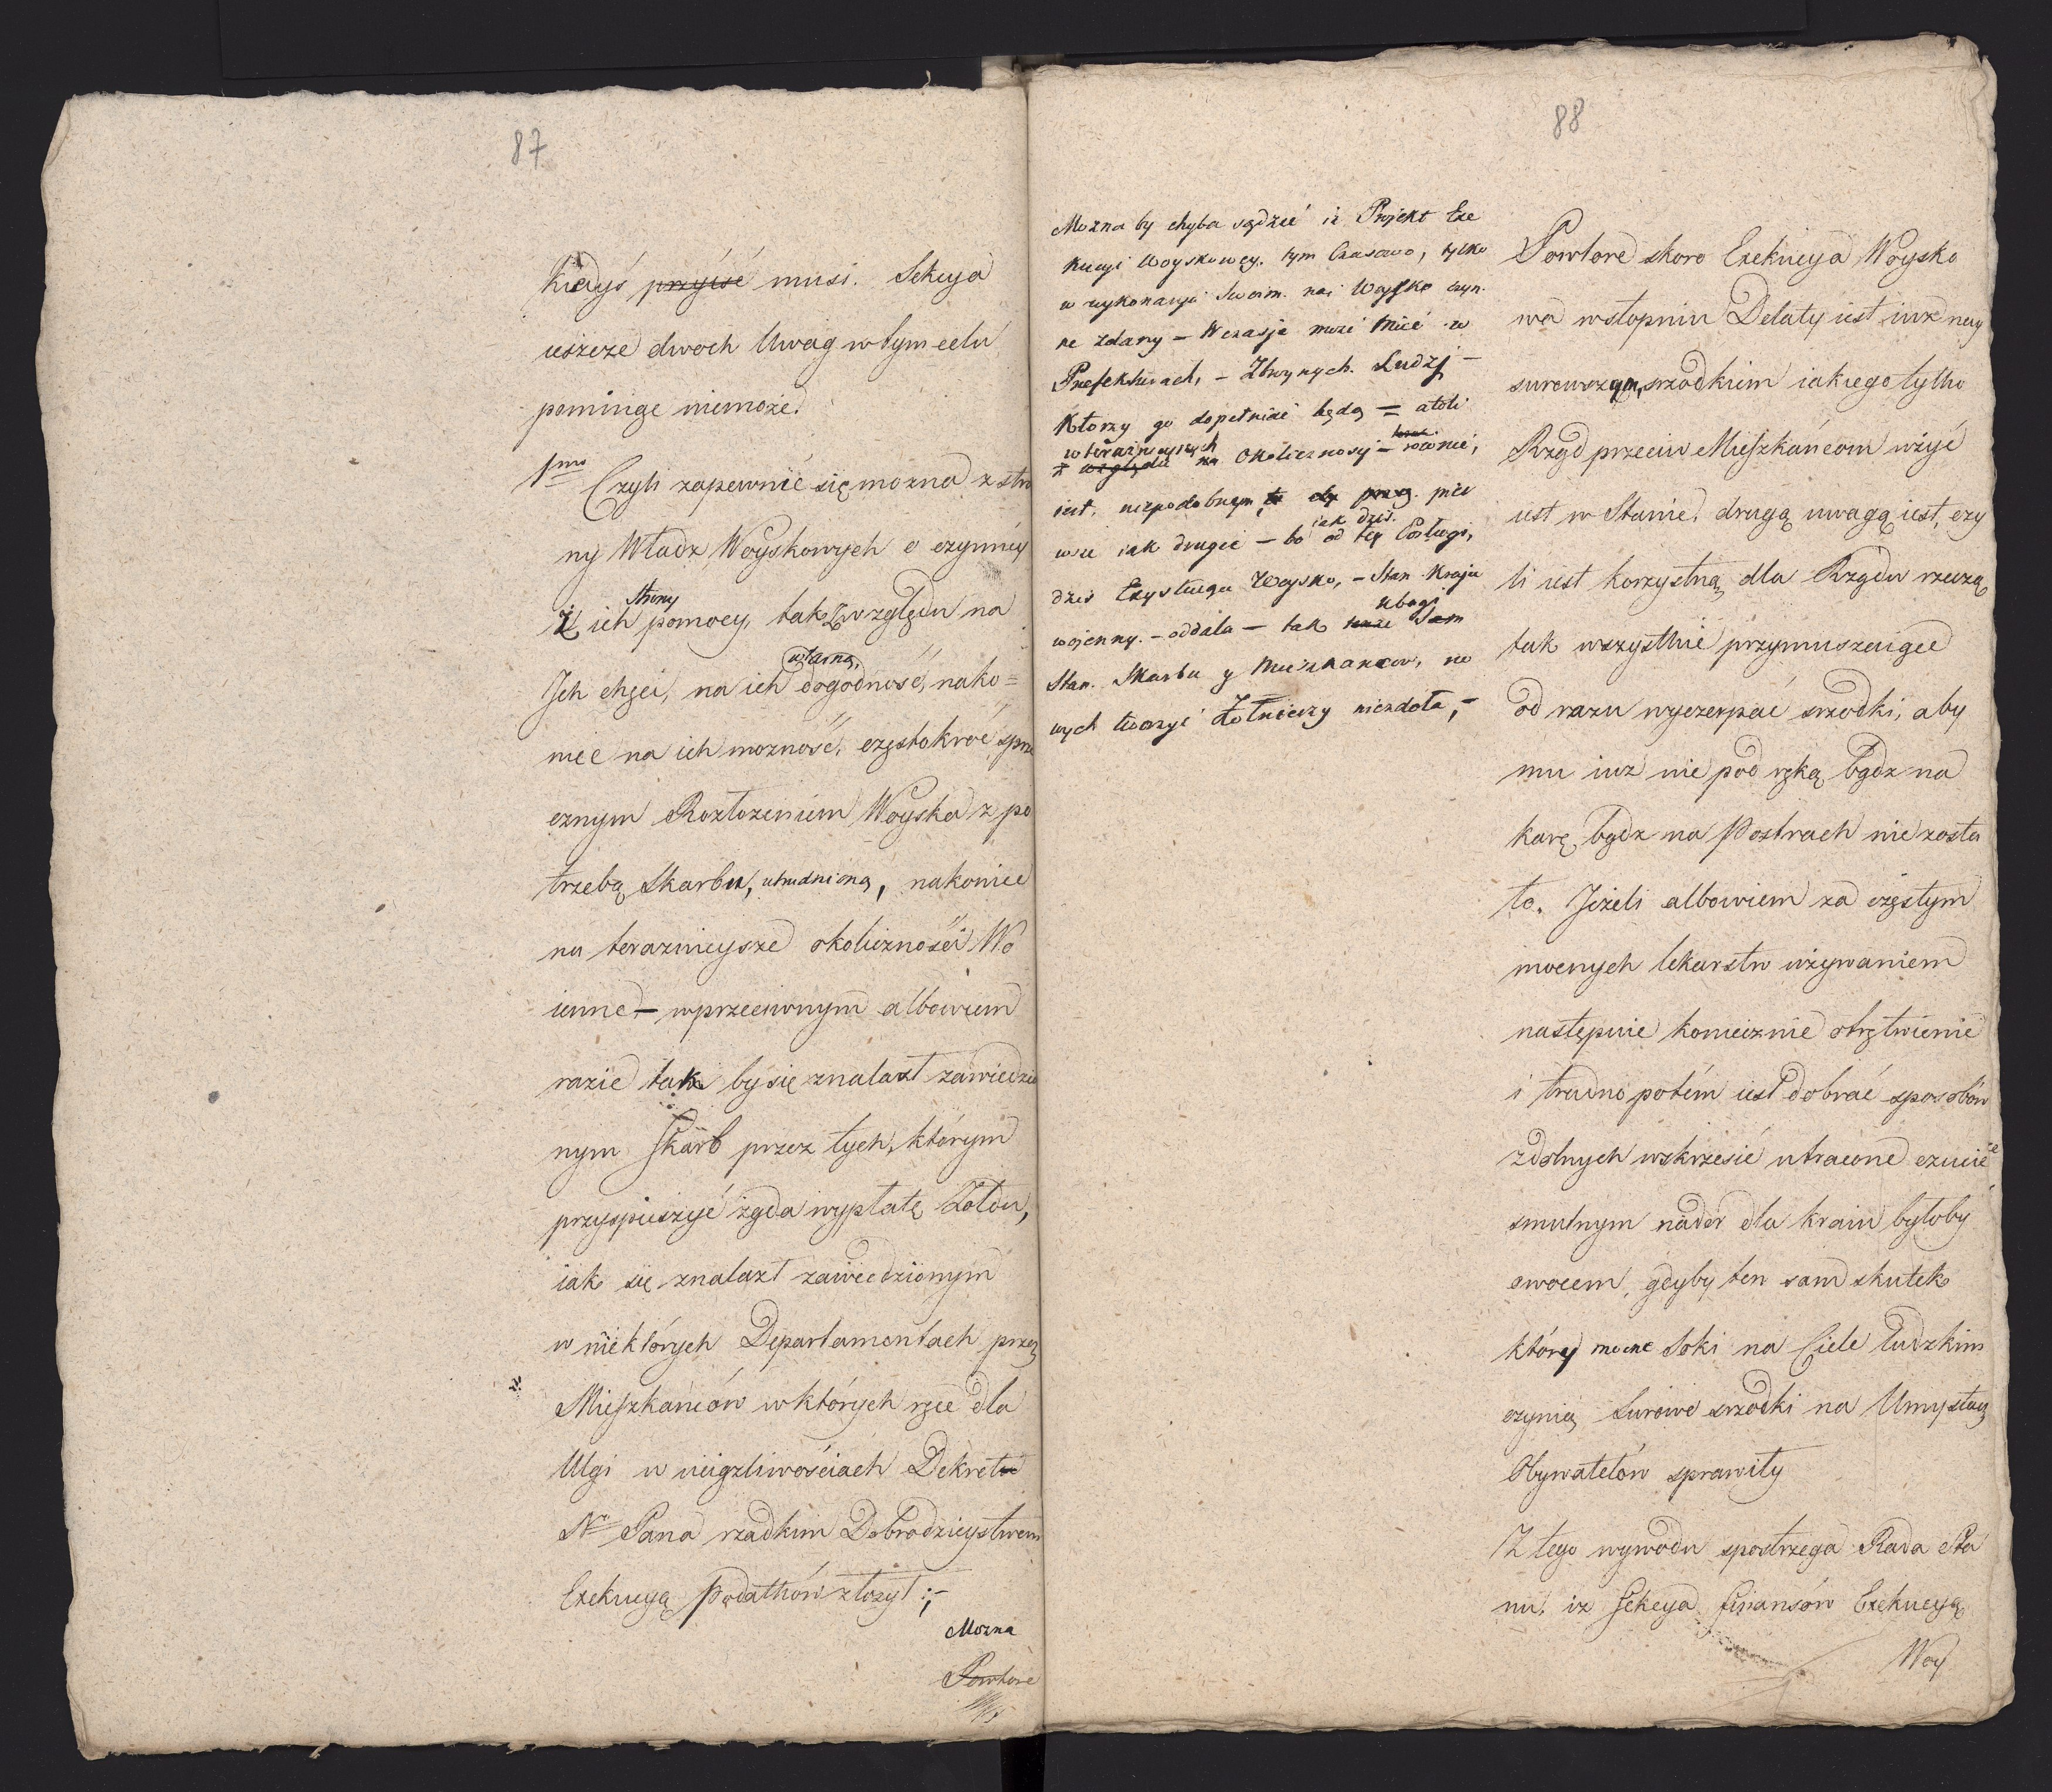 87
kiedyś przyiść musi. Sekcya
ieszcze dwoch Uwag w tym celu
pominąc niemoże.
1mo Czyli zapewnić się mozna z stro
ny Władz Woyskowych o czynney
Strony
z ich pomocy, tak z względu na
własną,
Ich chęci, na ich dogodność, nako=
niec na ich możność, częstokroć sprze
cznym Rozłożeniem Woyska z po
trzebą Skarbu, utrudnioną, nakoniec
na teraznieysze okoliczności Wo
ienne – w przeciwnym albowiem
razie tak by się znalazł zawiedzio
nym Skarb przez tych, którym
przyspieszyć żąda wypłatę Żołdu,
iak się znalazł zawiedzionym
w niektórych Departamentach przez
Mieszkańców w których ręce dla
Ulgi w uciążliwościach Dekret
Nr Pana rzadkim Dobrodzieystwem
Exekucyą Podatków złożył ;–
Mozna
Powtore
88
Mozna by chyba sądzić iz Projekt Exe
kucyi Woyskowey. tym Czasowo, tylko
w wykonaniu Swoim. na Woysko czyn.
ne zdany – Wczasie może Mieć w
Prefekturach, – Zbroynych. Ludzj –
Ktorzy go dopełniać będą – atoli
w teraznieyszych
z względu na Okolicznosci – rownie,
iest. niepodobnym, pier
iak dziś.
wsze iak drugie – bo od tey Posługi,
dziś Czysługa Woysko, – Stan Kraju
Ubogi
wojenny. – oddala – tak Sam
Stan. Skarbu y Mieszkancow, no
wych tworzyć Żołnierzy niezdoła, –
Powtore skoro Exekucya Woysko
wa w stopniu Delaty iest iuż nay
surowszym, srzodkiem iakiego tylko
Rząd przeciw Mieszkańcom użyć
iest w Stanie, drugą uwagą iest, czy
li iest korzystną dla Rządu rzeczą
tak wszystkie przymuszaiące
od razu wyczerpać srzodki, aby
mu iuz nie pod ręką bądz na
karę, bądz na Postrach nie zosta
ło. Jeżeli albowiem za częstym
mocnych lekarstw używaniem
następuie koniecznie otrętwienie
i trudno potém iest dobrać sposobów
zdolnych wskrzesić utracone czucie
smutnym nader dla kraiu byłoby
owocem, gdyby ten sam skutek
który mocne Soki na Ciele ludzkim
czynią Surowe srzodki na Umysłach
Obywatelów sprawiły
Z tego wywodu spostrzega Rada Sta
nu, iz Sekcya Finansów Exekucyą
Woy